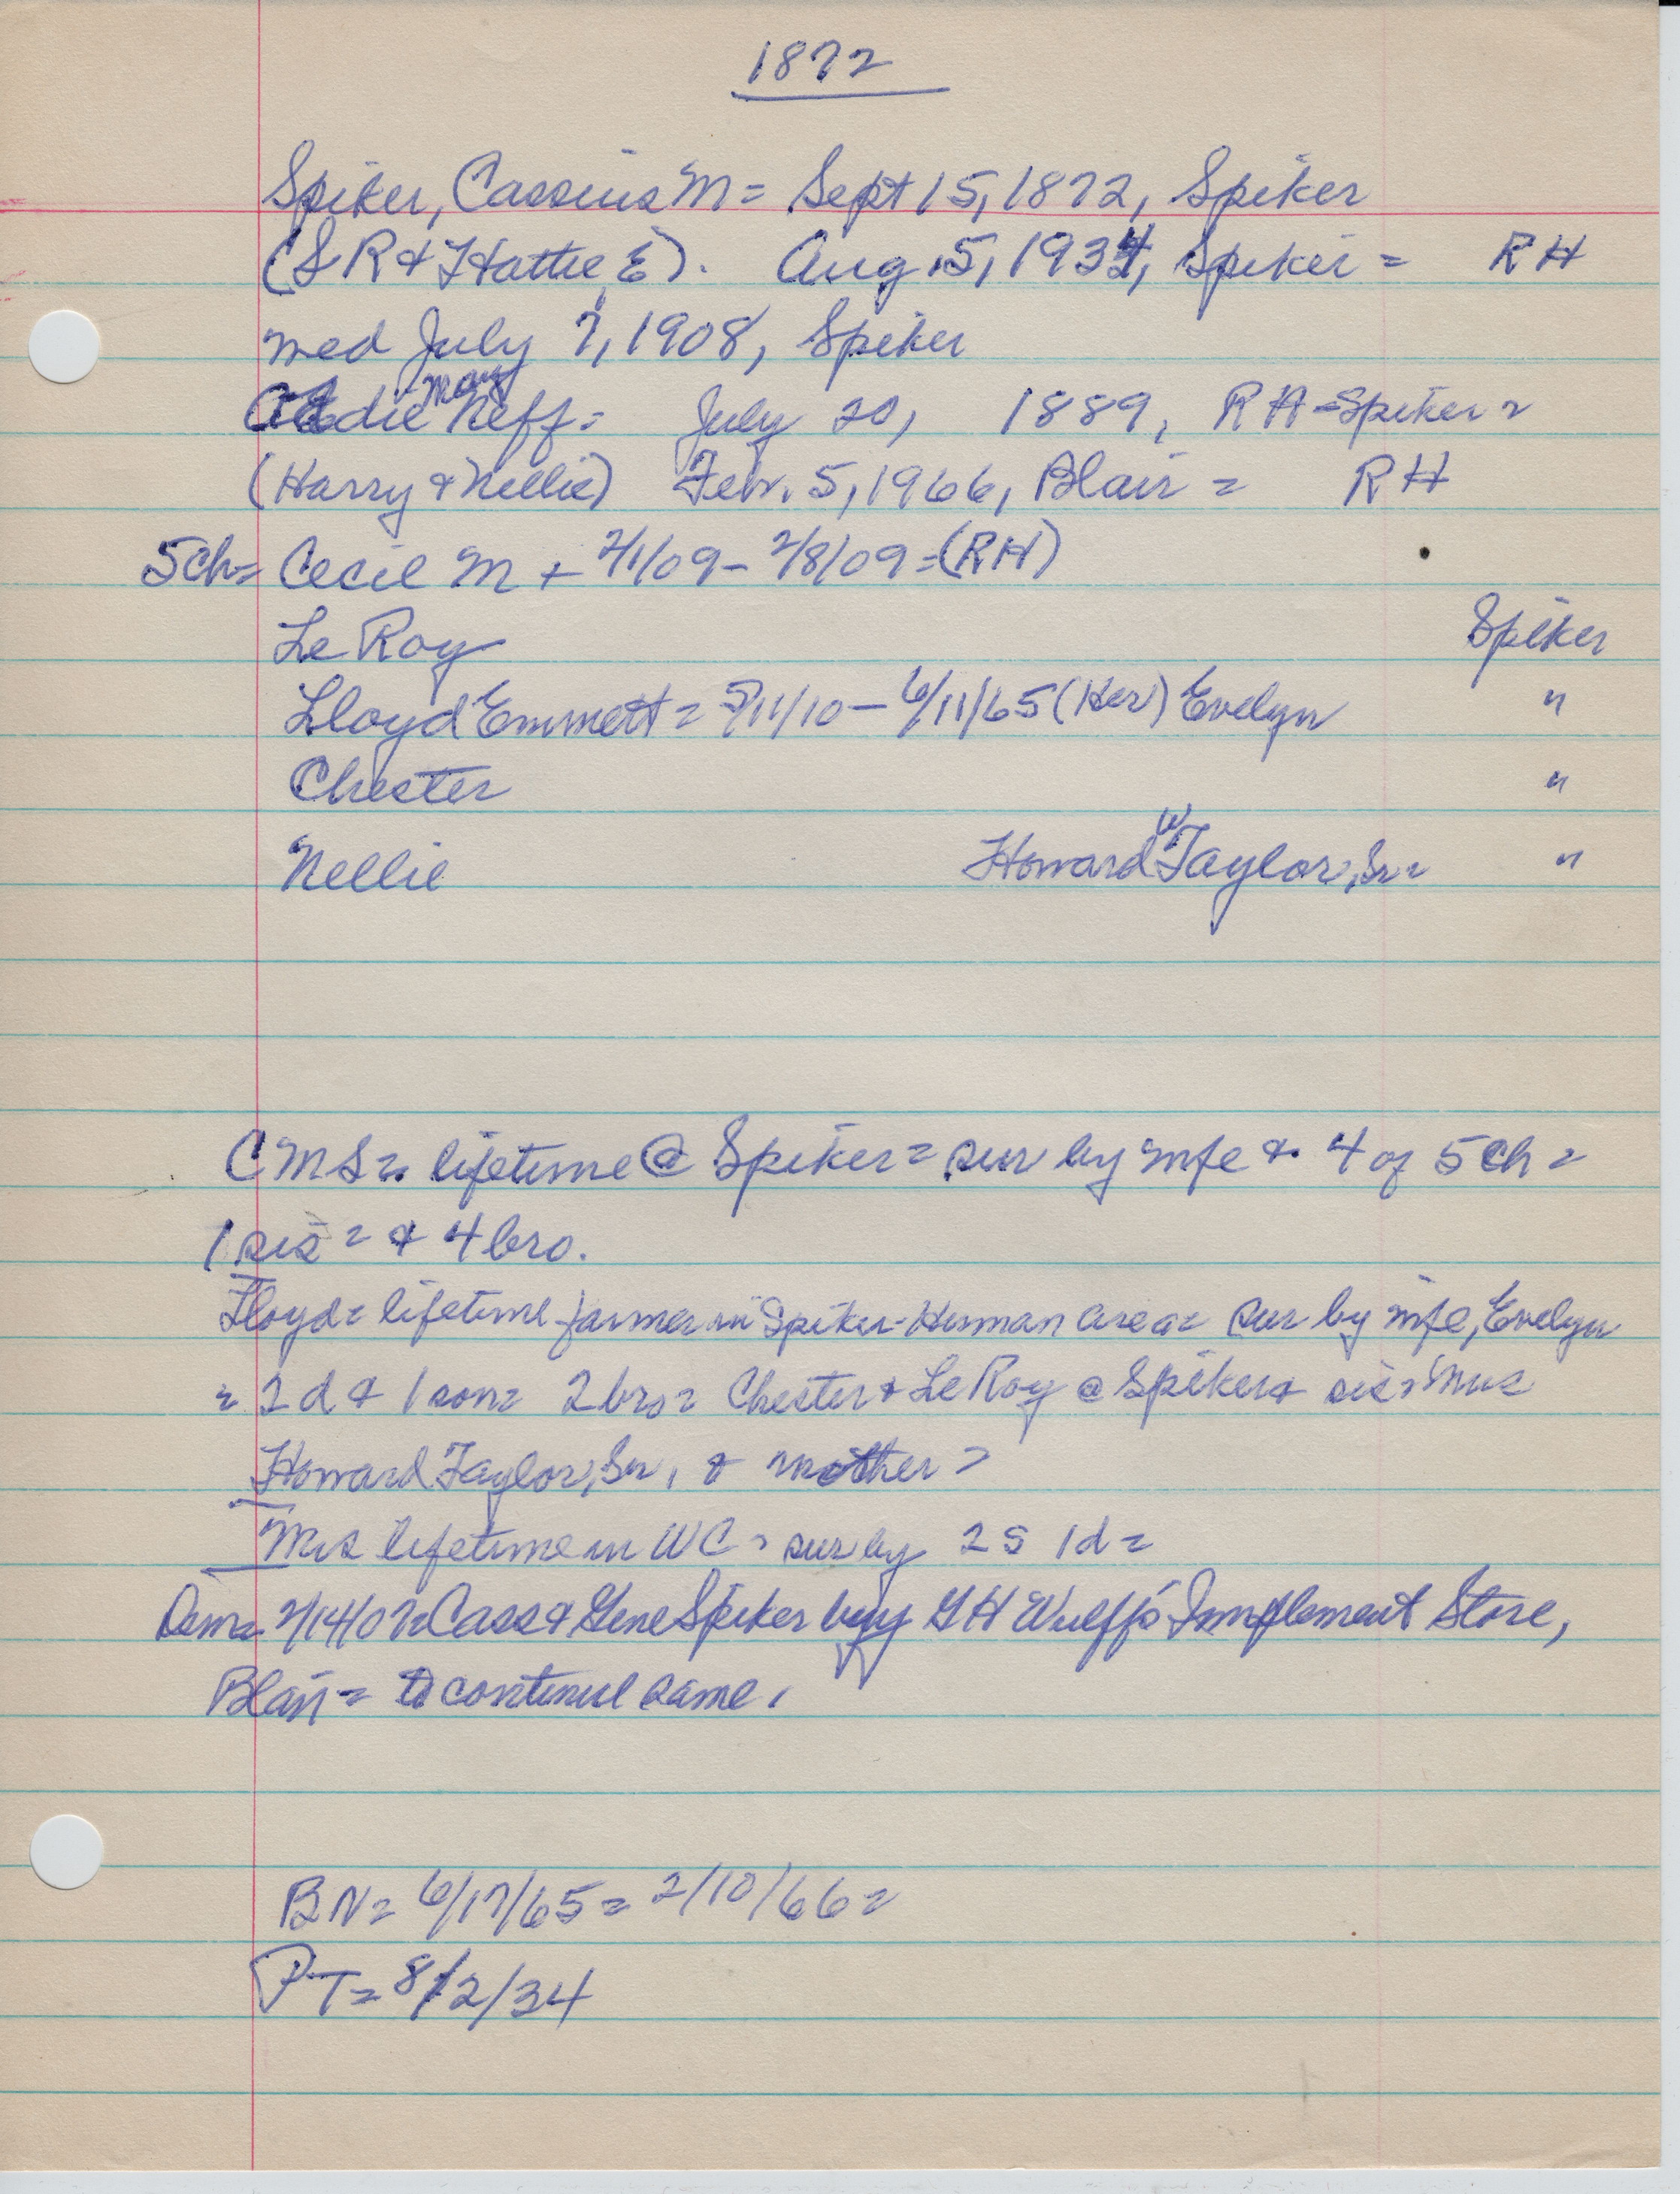 1872
Spiker, Cassius M = Sept 15, 1872, Spiker
(S R & Hattie E). Aug. 5, 1934, Spiker = RH
med July 7, 1908, Spiker
May
Addie Neff = July 20, 1889, RH - Spiker =
(Harry & Nellie) Febr. 5, 1966, Blair = RH
5ch = Cecil M + 2/1/09 - 2/8/09 = (RH)
Le Roy Spiker
Lloyd Emmett = 5/11/10 - 6/11/65 (Her) Evelyn "
Chester "
Nellie Howard W Taylor, Sr = "
C M S = lifetime @ Spiker = sur by wife & 4 of 5 ch =
1 sis = & 4 bro.
Lloyd = lifetime farmer in Spiker-Herman area = sur by wife, Evelyn
= 2 d & 1 son = 2 bro = Chester & Le Roy @ Spiker & sis = Mrs
Howard Taylor, Sr, & mother =
Mrs lifetime in WC = sur by 2 S 1 d =
Dem = 2/14/07 = Cass & Gene Spiker buy G H Wulff's Implement Store,
Blair = to continue same.
BN = 6/17/65 = 2/10/66 =
PT = 8/2/34